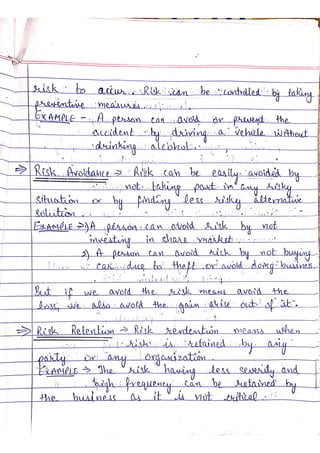 risk to accur. Risk can be controlled by taking
preventive measures.
EXAMPLE - A person can avoid or prevent the
accident by driving a vehicle without
drinking alcohol.
⇒ Risk Avoidance → Risk can be easily avoided by
not taking part in any risky
situation or by finding less risky alternative
solution.
EXAMPLE → 1) A person can avoid risk by not
investing in share market
2) A person can avoid risk by not buying
car due to theft or avoid doing business.
But if we avoid the risk means avoid the
loss, we also avoid the gain arise out of it.
⇒ Risk Retention → Risk rentention means when
risk is retained by any
party or any Organisation.
EXAMPLE → The risk having less severity and
high frequency can be retained by
the business as it is not critical